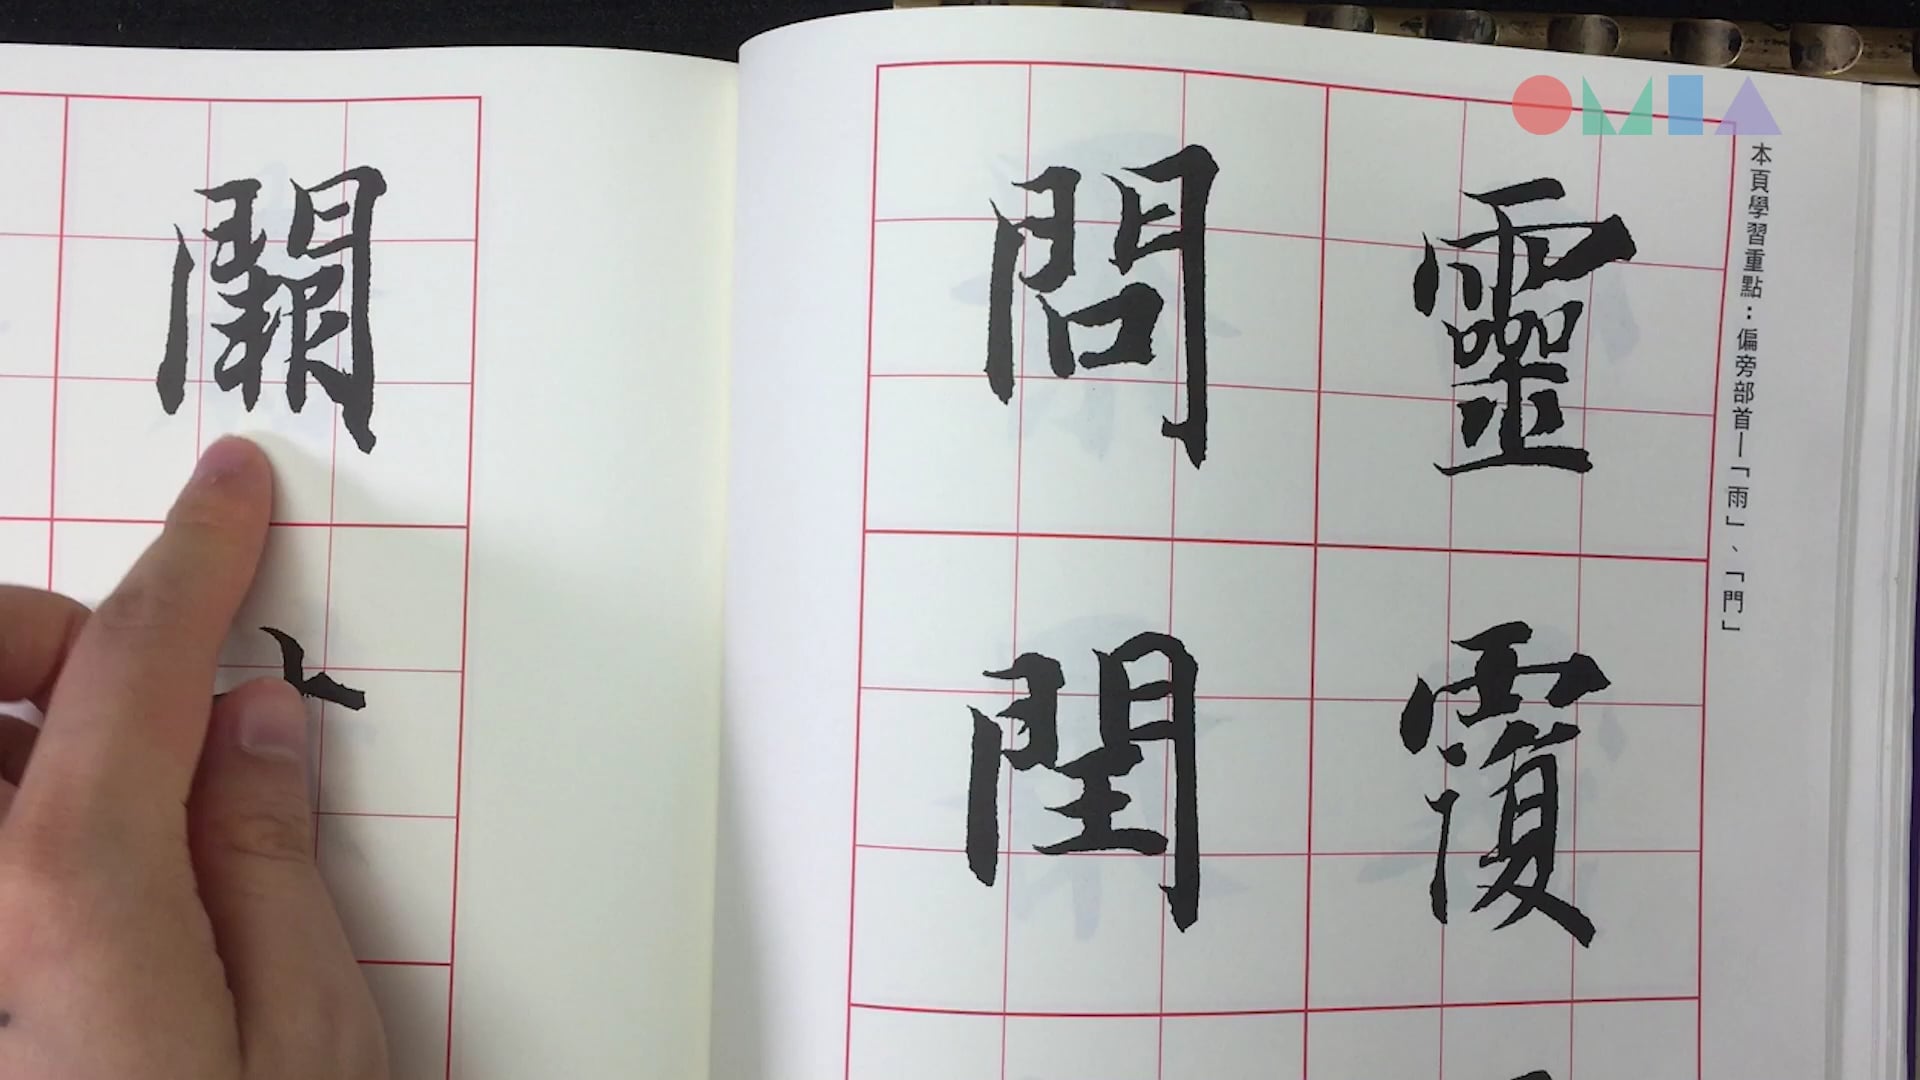 本頁學習重點：偏旁部首—「雨」、「門」
靈
覆
問
閏
OMIA